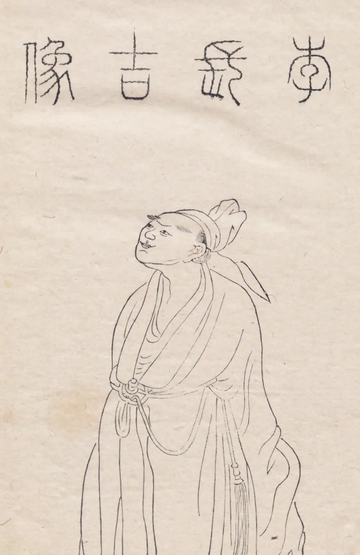 李長吉像